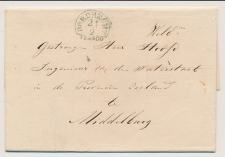 21
2
WelEd.
Gestrengen Heer
Ingenieur van den Waterstaat
in de Provincie Zeeland
te
Middelburg